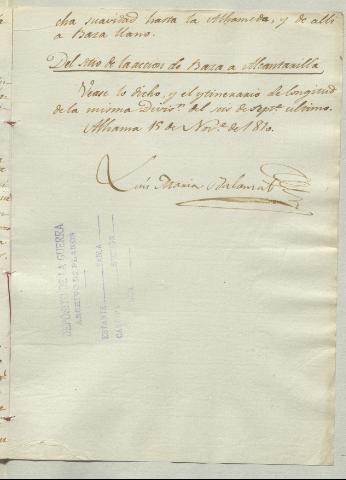 cha suavidad hasta la Alhameda, y de alli
a Baza llano.
Del sitio de la accion de Baza a Alcantarilla
Vease lo dicho, y el ytinerario de longitud
de la misma Divisn. del mes de Septe. ultimo.
Alhama 15 de Nove. de 1810.
Luis Maria Balanzat
DEPÓSITO DE LA GUERRA
ARCHIVO DE PLANOS
ESTANTE TABLA